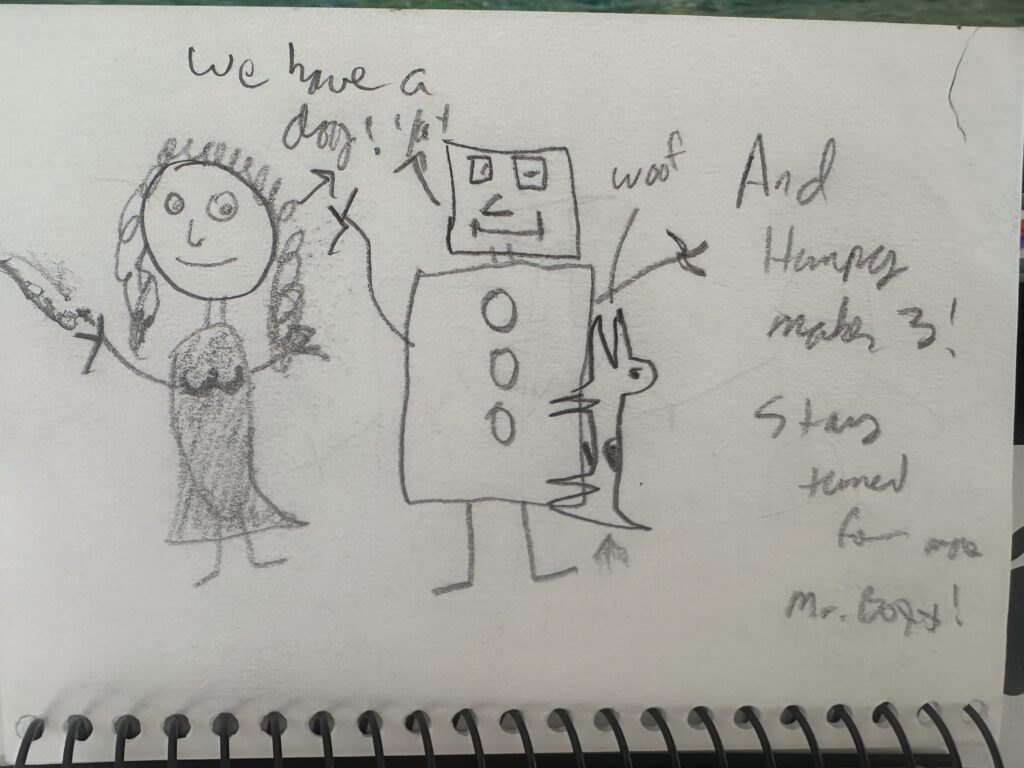 We have a
dog!
woof
And
Humpey
makes 3!
Stay
tuned
for more
Mr. Boxx!